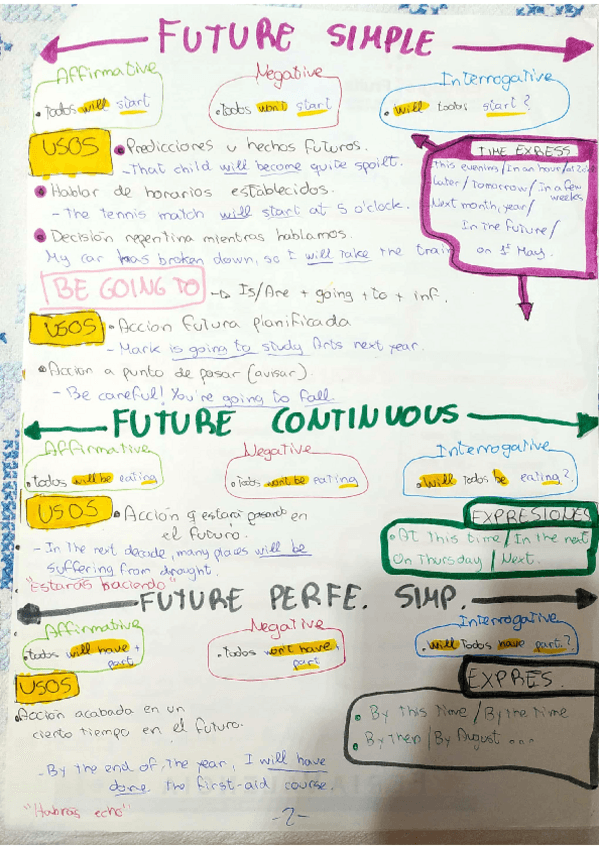 FUTURE SIMPLE
Affirmative
Negative
Interrogative
• Todos will start
• Todos won't start
• Will todos start?
USOS
• Predicciones u hechos futuros.
- That child will become quite spoilt.
• Hablar de horarios establecidos.
- The tennis match will start at 5 o'clock.
• Decisión repentina mientras hablamos.
My car has broken down, so I will take the train
TIME EXPRESS
This evening/In an hour/
later/Tomorrow/in a few
weeks
Next month, year/
In the future/
on 1st May.
BE GOING TO
→ Is/Are + going + to + inf.
USOS
• Accion futura planificada
- Mark is going to study Arts next year.
• Acción a punto de pasar (avisar)
- Be careful! You're going to fall.
FUTURE CONTINUOUS
Affirmative
Negative
Interrogative
• todos will be eating
• Todos won't be eating
• Will todos be eating?
USOS
• Acción q estará pasando en
el futuro.
- In the next decade, many places will be
suffering from drought.
"Estarás haciendo"
EXPRESIONES
• At this time / In the next
On Thursday / Next.
FUTURE PERFE. SIMP.
Affirmative
Negative
Interrogative
• todos will have +
part
• Todos won't have +
part
• Will Todos have part.?
USOS
• Acción acabada en un
cierto tiempo en el futuro.
- By the end of the year, I will have
done the first-aid course.
"Habrás echo"
EXPRES.
• By this time / By the time
• By then / By August ...
-2-